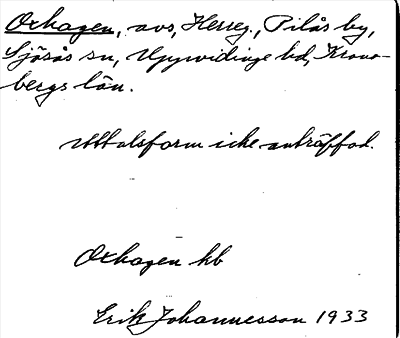 Oxhagen, avs, Herreg., Pilås by,
Sjösås sn, Uppvidinge hd, Krono-
bergs län.
Uttalsform icke anträffad.
Oxhagen hb
Erik Johannesson 1933